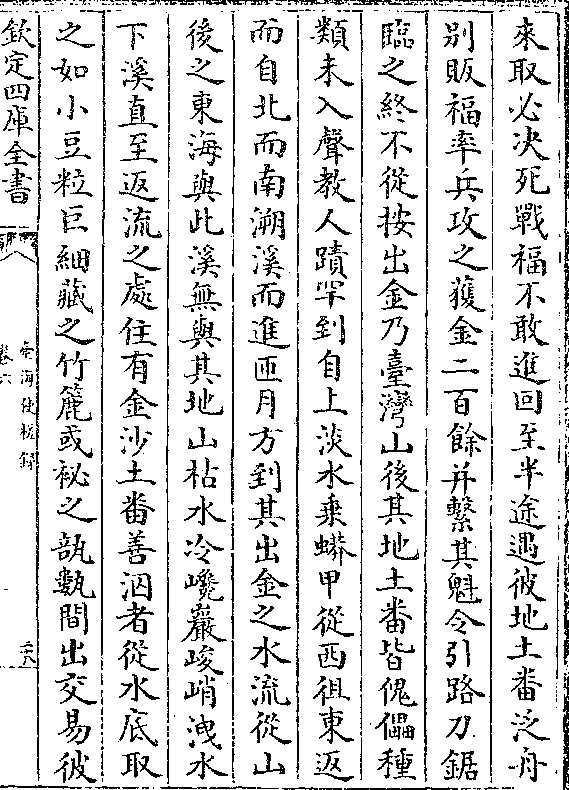 來取必决死戰福不敢進回至半途遇彼地土番泛舟
别販福率兵攻之獲金二百餘并繫其魁令引路刀鋸
臨之終不從按出金乃臺灣山後其地土番皆傀儡種
類未入聲教人蹟罕到自上淡水乗蟒甲從西徂東返
而自北而南溯溪而進匝月方到其出金之水流從山
後之東海與此溪無與其地山枯水冷巉巖峻峭洩水
下溪直至返流之處住有金沙土番善泅者從水底取
之如小豆粒巨細藏之竹簏或祕之瓿甊間出交易彼
欽定四庫全書
臺海使槎録
卷六
二六